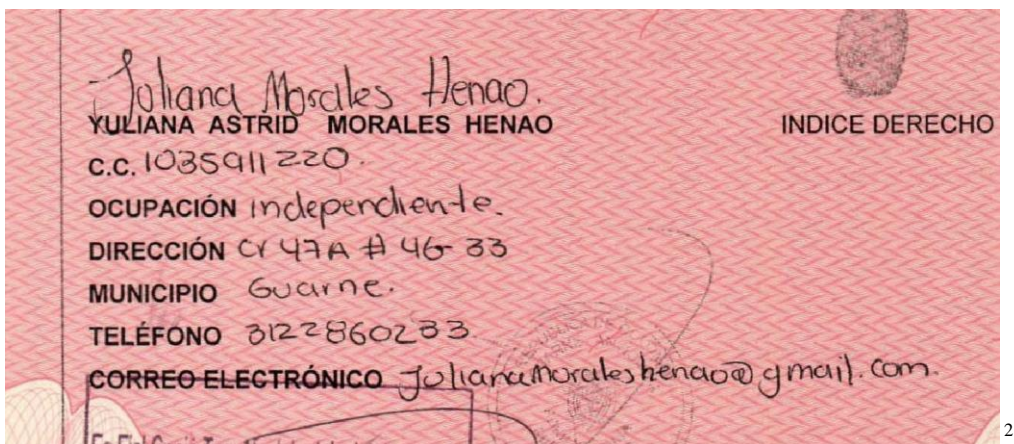 Juliana Morales Henao.
YULIANA ASTRID MORALES HENAO
INDICE DERECHO
C.C. 1035911220.
OCUPACIÓN independiente.
DIRECCIÓN Cr 47A # 46-33
MUNICIPIO Guarne.
TELÉFONO 3122860233
CORREO ELECTRÓNICO Julianamoraleshenao@gmail.com.
2